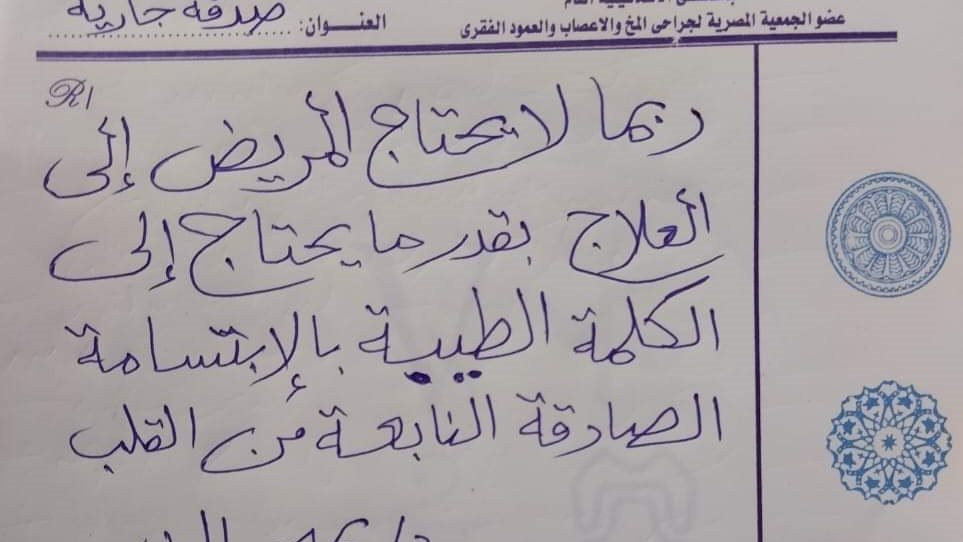 عضو الجمعية المصرية لجراحى المخ والاعصاب والعمود الفقرى
العنـــوان: صدقة جارية
R/
ربما لا يحتاج المريض إلى
العلاج بقدر ما يحتاج إلى
الكلمة الطيبة بالإبتسامة
الصادقة النابعة من القلب